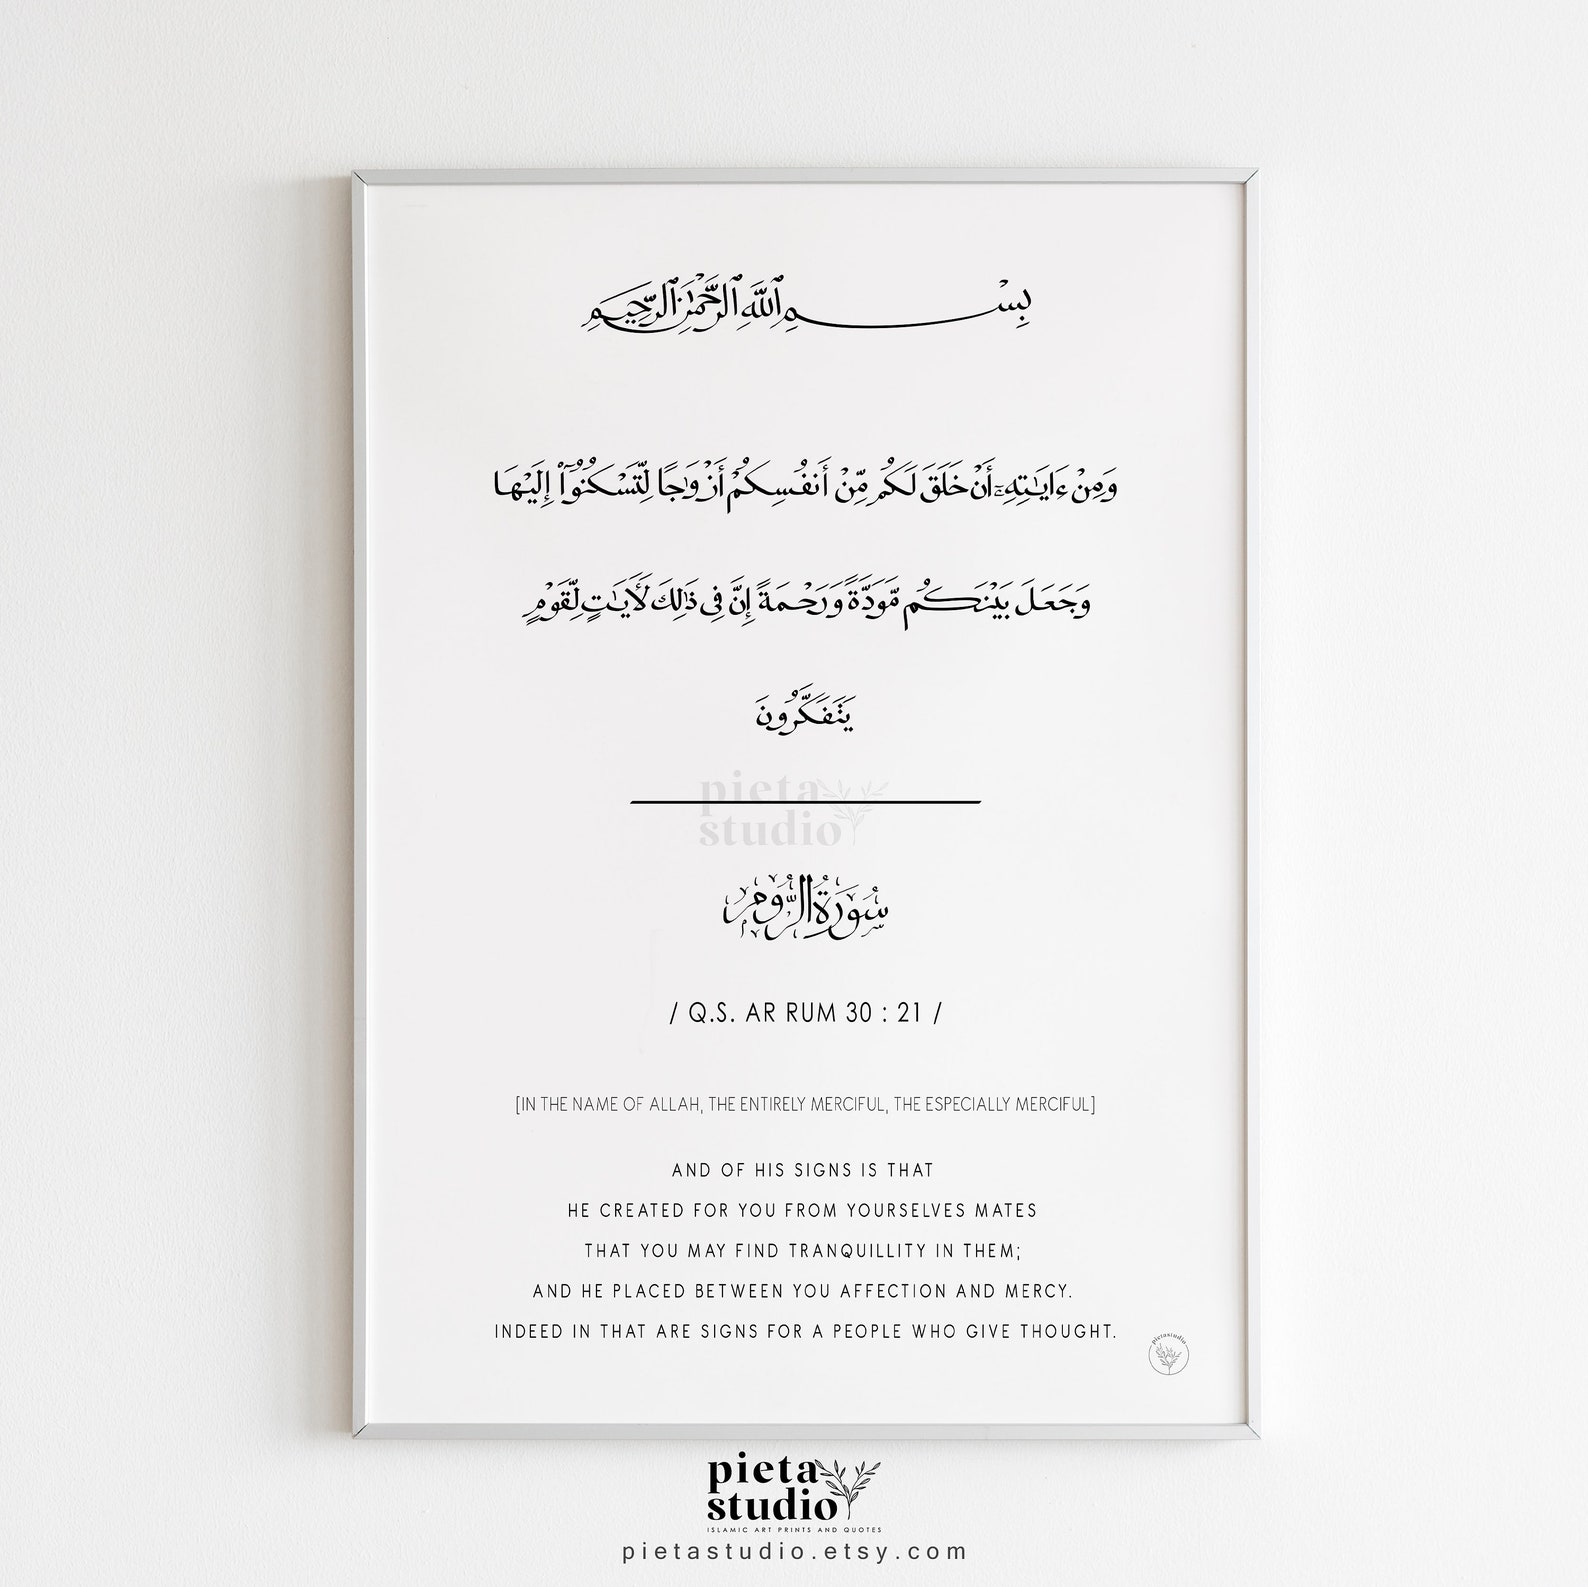 بِسْمِ ٱللَّهِ ٱلرَّحْمَٰنِ ٱلرَّحِيمِ
وَمِنْ ءَايَٰتِهِۦٓ أَنْ خَلَقَ لَكُم مِّنْ أَنفُسِكُمْ أَزْوَٰجًا لِّتَسْكُنُوٓا۟ إِلَيْهَا
وَجَعَلَ بَيْنَكُم مَّوَدَّةً وَرَحْمَةً إِنَّ فِى ذَٰلِكَ لَأَيَٰتٍ لِّقَوْمٍ
يَتَفَكَّرُونَ
pieta
studio
سُورَةُ الرُّومِ
/ Q.S. AR RUM 30 : 21 /
[IN THE NAME OF ALLAH, THE ENTIRELY MERCIFUL, THE ESPECIALLY MERCIFUL]
AND OF HIS SIGNS IS THAT
HE CREATED FOR YOU FROM YOURSELVES MATES
THAT YOU MAY FIND TRANQUILLITY IN THEM;
AND HE PLACED BETWEEN YOU AFFECTION AND MERCY.
INDEED IN THAT ARE SIGNS FOR A PEOPLE WHO GIVE THOUGHT.
pietastudio
pieta
studio
ISLAMIC ART PRINTS AND QUOTES
pietastudio.etsy.com